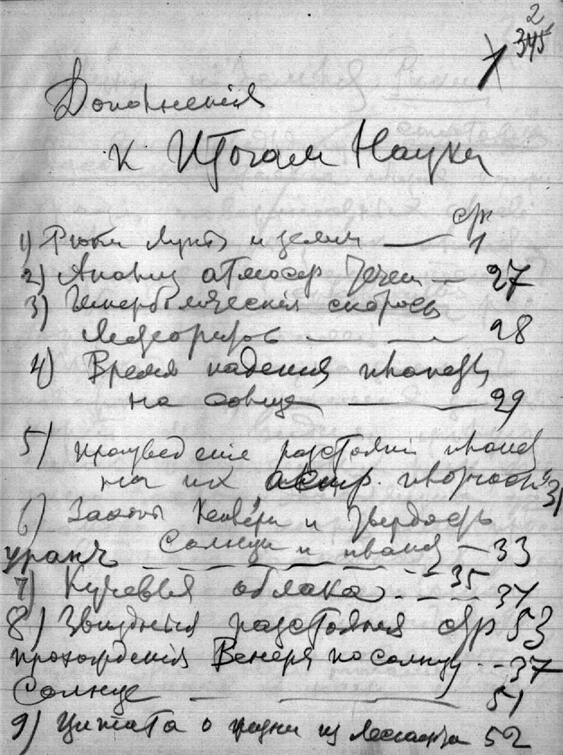 2
1 345
Дополненія
к Итогам Науки
стр
1) луны и земли — 1
2) Анализ атмосфер — 27
3) Гиперболическія скорость
Метеоритов — — 28
4) Время паденія планеты
на солнце — 29
5) произведеніе разстояній планет
на их 31
6) Законы Кеплера и твердость
Солнца и планет — 33
уран — — — — — 35
7) Кучевыя облака — — — 37
8) Звѣздныя разстоянія стр 53
прохожденія Венеры по солнцу — — 37
Солнце — — — 51
9) Цитата о жизни из 52